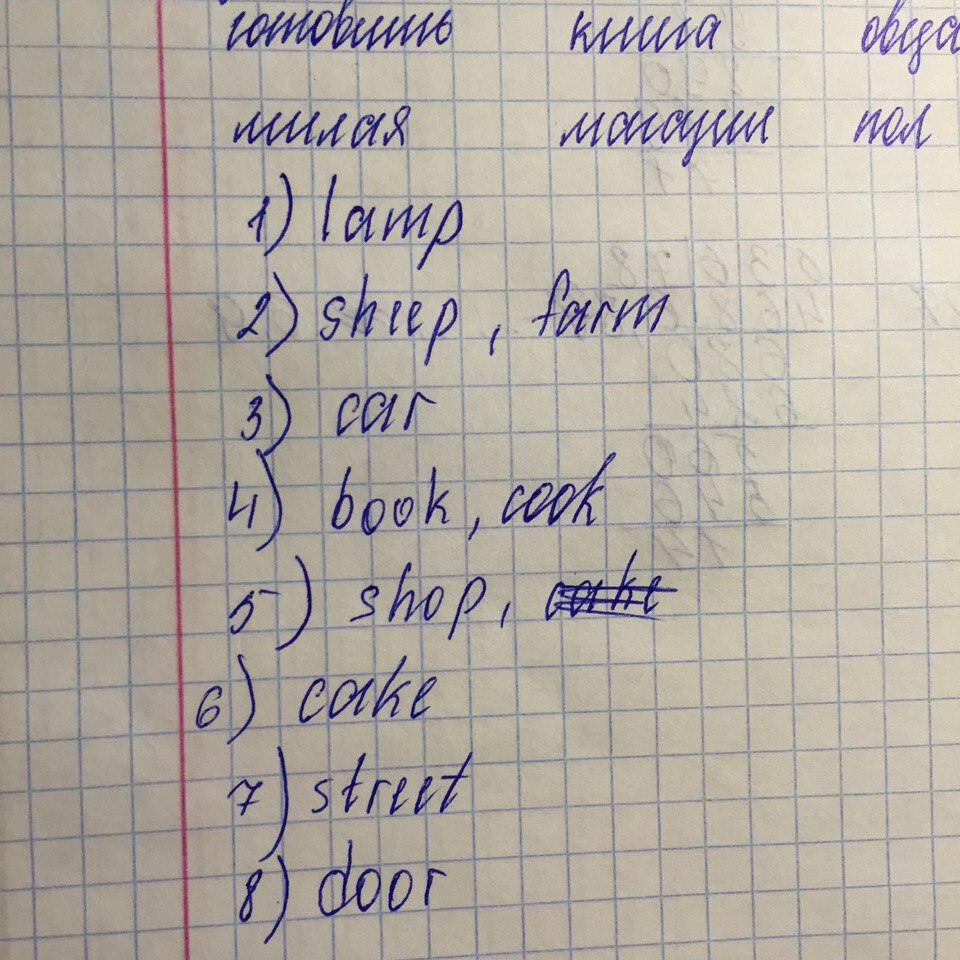 готовить книга овца
милая магазин пол
1) lamp
2) sheep, farm
3) car
4) book, cook
5) shop, cake
6) cake
7) street
8) door